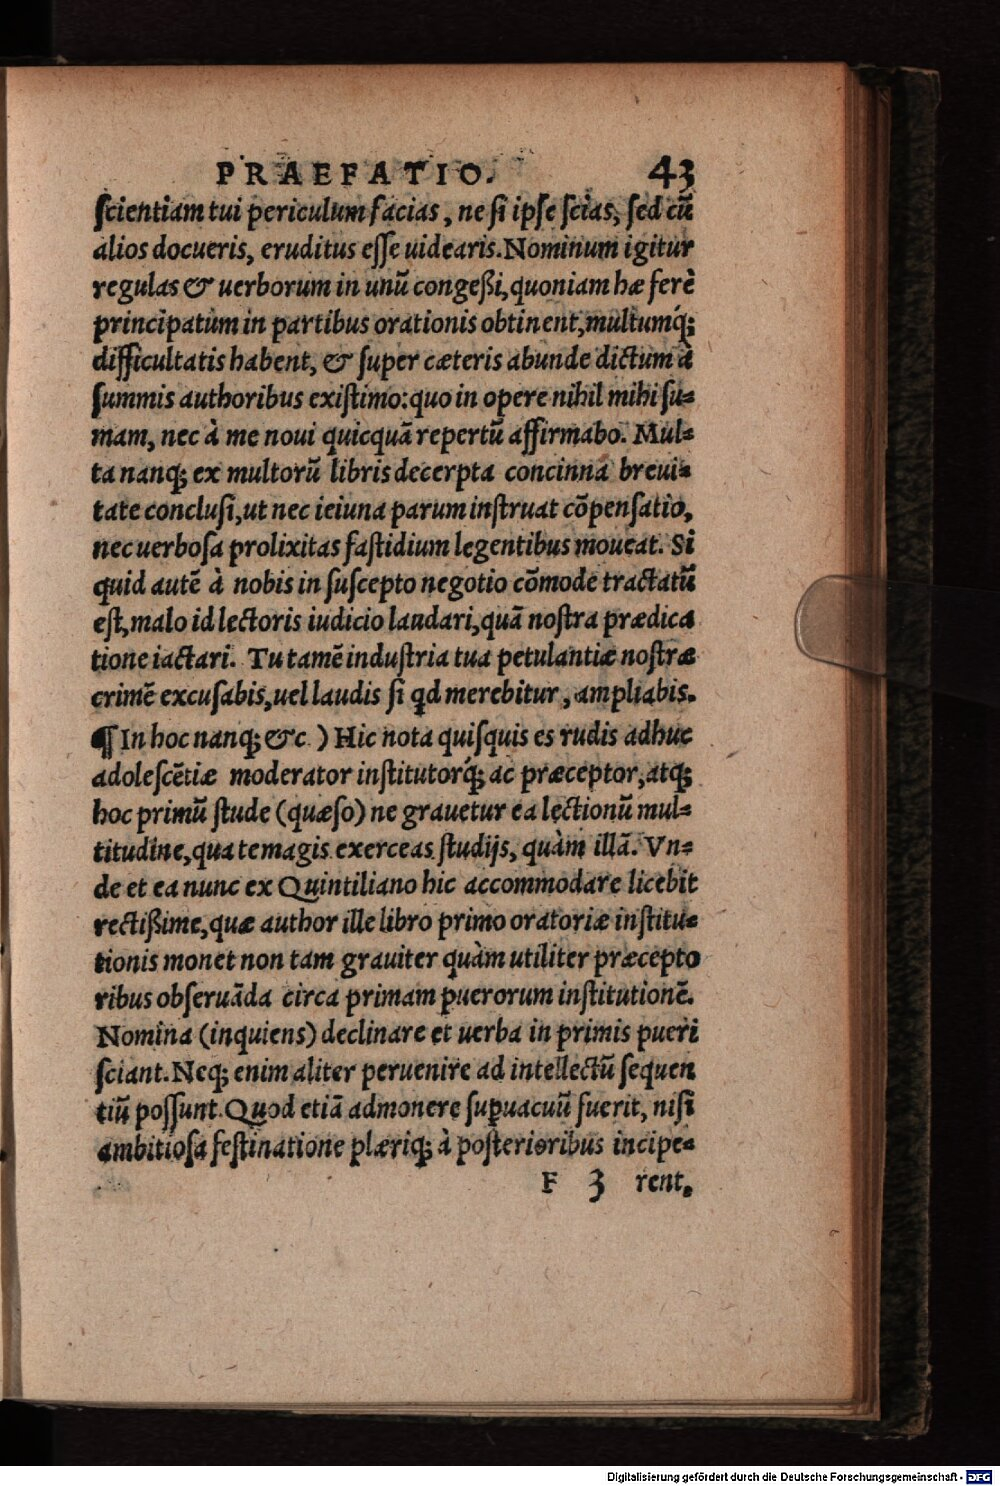 PRAEFATIO. 43
ſcientiam tui periculum facias, ne ſi ipſe ſcias, ſed cũ
alios docueris, eruditus eſſe uidearis. Nominum igitur
regulas & uerborum in unũ congeßi, quoniam hæ ferè
principatum in partibus orationis obtinent, multumq́;
difficultatis habent, & ſuper cæteris abunde dictum à
ſummis authoribus exiſtimo: quo in opere nihil mihi ſu=
mam, nec à me noui quicquã repertũ affirmabo. Mul=
ta nanq; ex multorũ libris decerpta concinna breui=
tate concluſi, ut nec ieiuna parum inſtruat cõpenſatio,
nec uerboſa prolixitas faſtidium legentibus moueat. Si
quid autẽ à nobis in ſuſcepto negotio cõmode tractatũ
eſt, malo id lectoris iudicio laudari, quã noſtra prædica
tione iactari. Tu tamẽ induſtria tua petulantiæ noſtræ
crimẽ excuſabis, uel laudis ſi qd merebitur, ampliabis.
¶ In hoc nanq; &c.) Hic nota quiſquis es rudis adhuc
adoleſcẽtiæ moderator inſtitutorq́; ac præceptor, atq;
hoc primũ ſtude (quæſo) ne grauetur ea lectionũ mul=
titudine, qua te magis exerceas ſtudijs, quàm illã. Vn=
de et ea nunc ex Quintiliano hic accommodare licebit
rectißime, quæ author ille libro primo oratoriæ inſtitu=
tionis monet non tam grauiter quàm utiliter præcepto
ribus obſeruãda circa primam puerorum inſtitutionẽ.
Nomina (inquiens) declinare et uerba in primis pueri
ſciant. Neq; enim aliter peruenire ad intellectũ ſequen
tiũ poſſunt. Quod etiã admonere ſuꝑuacuũ fuerit, niſi
ambitioſa feſtinatione plæriq; à poſterioribus incipe=
F 3 rent.
Digitalisierung gefördert durch die Deutsche Forschungsgemeinschaft - DFG